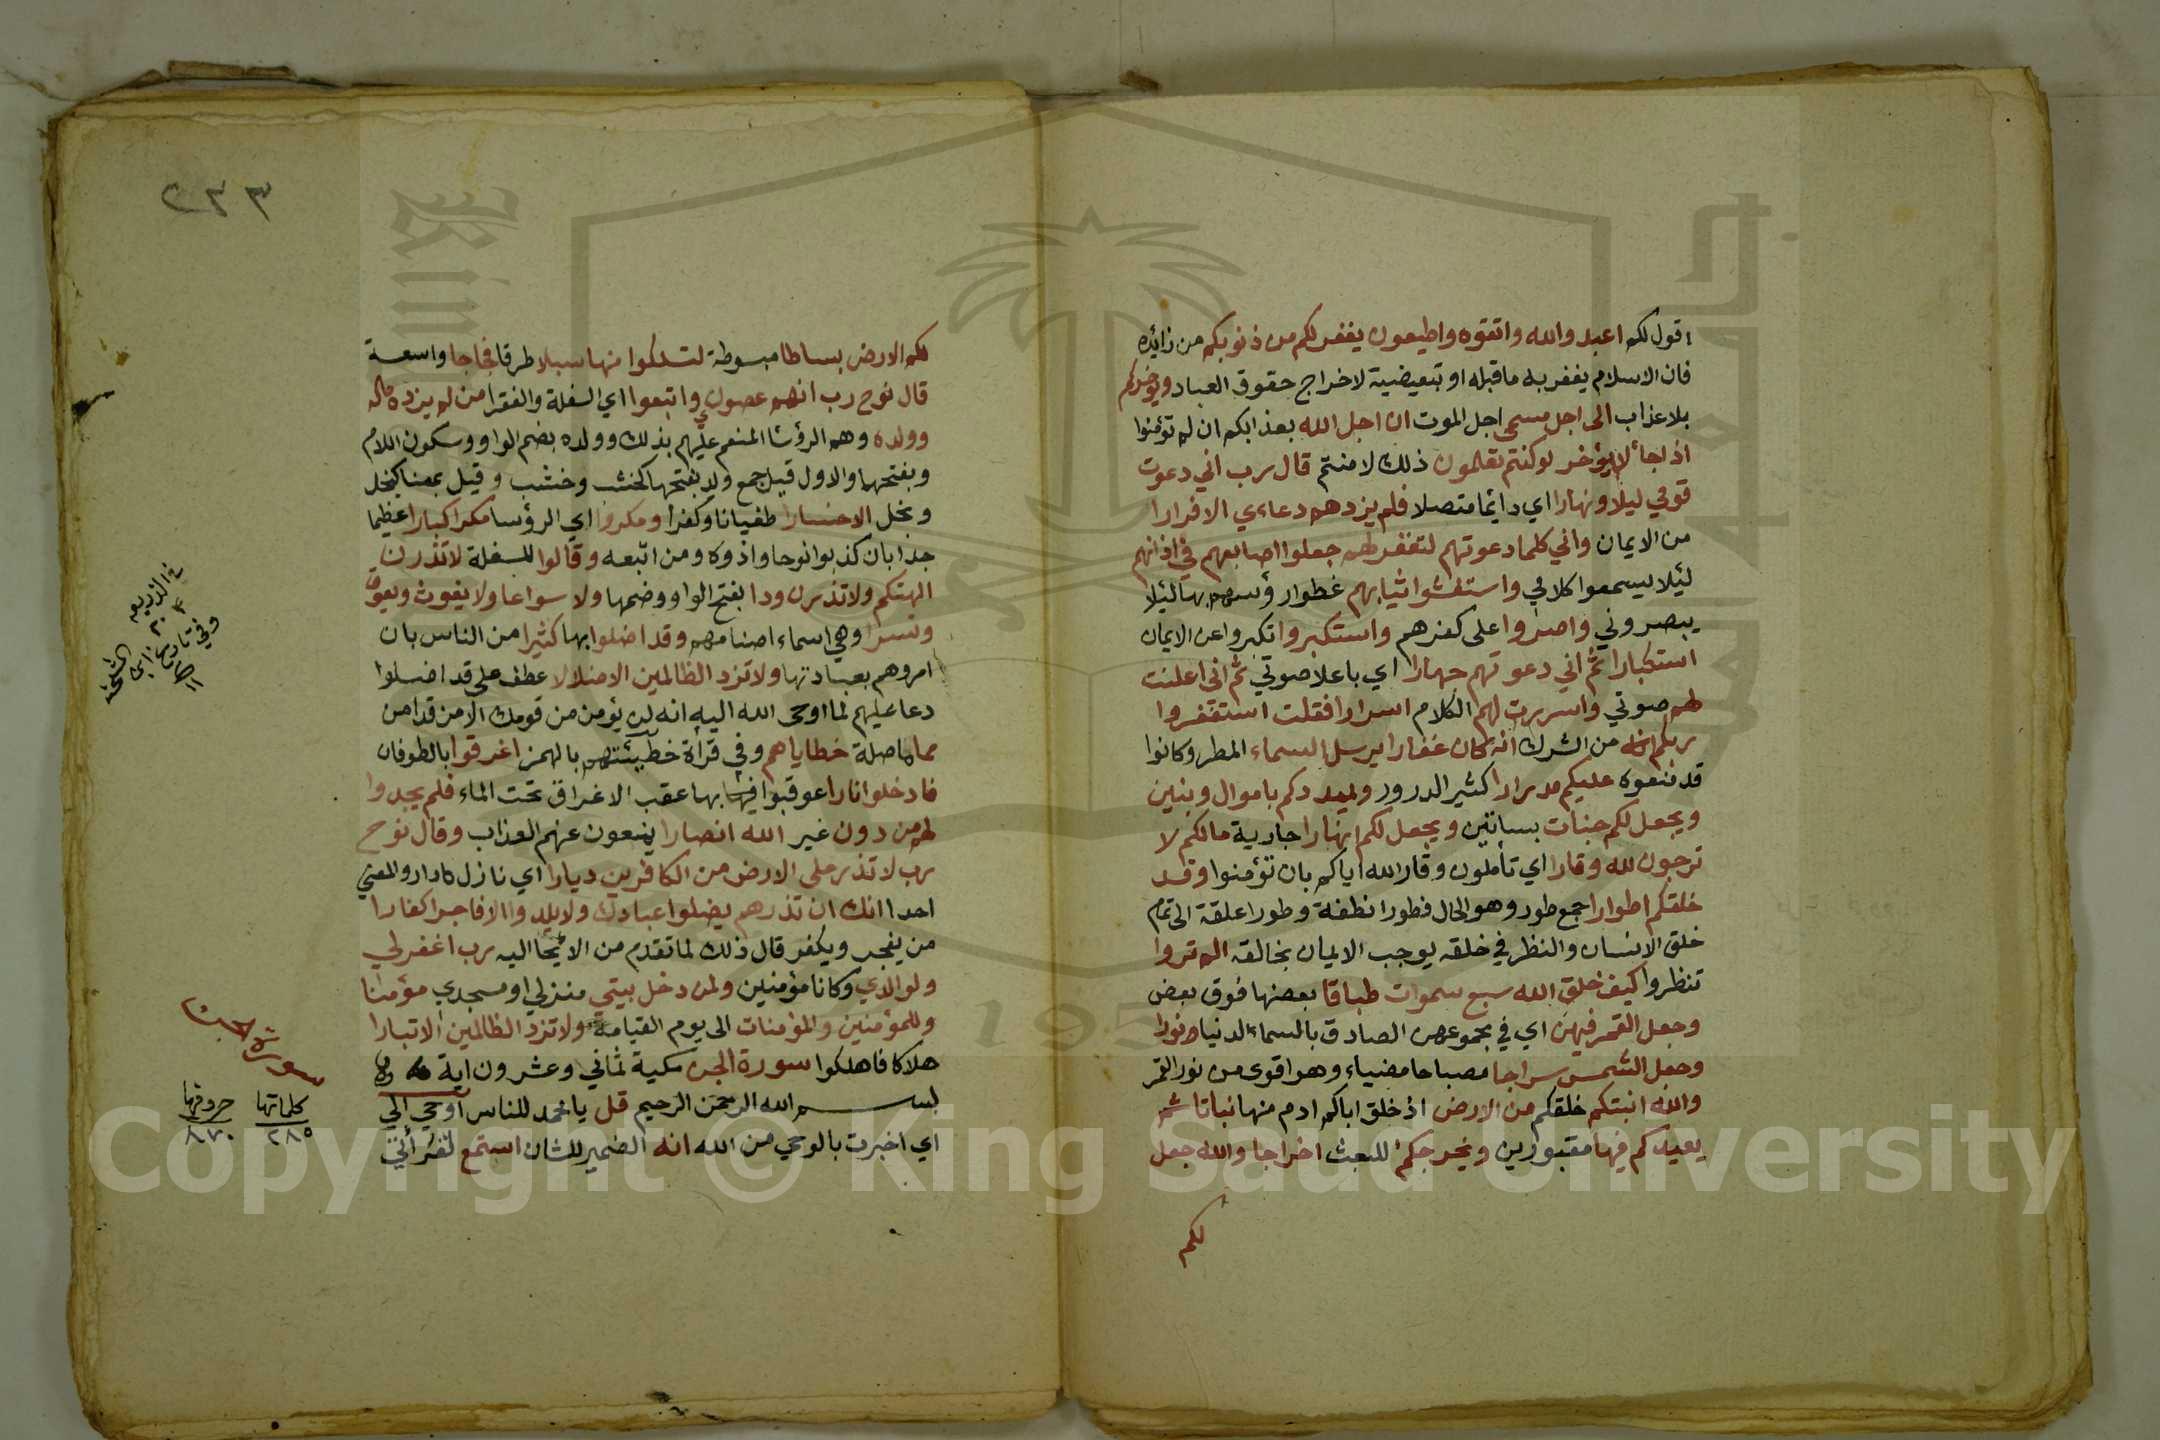 اقول لكم اعبدوا الله واتقوه واطيعون يغفر لكم من ذنوبكم من زائده
فان الاسلام يغفر به ما قبله او تبعيضية لاخراج حقوق العباد ويؤخركم
بلا عذاب الى اجل مسمى اجل الموت ان اجل الله بعذابكم ان لم تؤمنوا
اذا جاء لا يؤخر لو كنتم تعلمون ذلك لامنتم قال رب اني دعوت
قومي ليلا ونهارا اي دائما متصلا فلم يزدهم دعاءي الا فرارا
من الايمان واني كلما دعوتهم لتغفر لهم جعلوا اصابعهم في اذانهم
لئلا يسمعوا كلامي واستغشوا ثيابهم غطوا رؤسهم بها لئلا
يبصروني واصروا على كفرهم واستكبروا تكبروا عن الايمان
استكبارا ثم اني دعوتهم جهارا اي باعلا صوتي ثم اني اعلنت
لهم صوتي واسررت لهم الكلام اسرارا فقلت استغفروا
ربكم من الشرك انه كان غفارا يرسل السماء المطر وكانوا
قد منعوه عليكم مدرارا كثير الدرور ويمددكم باموال وبنين
ويجعل لكم جنات بساتين ويجعل لكم انهارا جارية مالكم لا
ترجون لله وقارا اي تأملون وقار الله اياكم بان تؤمنوا وقد
خلقكم اطوارا جمع طور وهو الحال فطورا نطفة وطورا علقة الى تمام
خلق الانسان والنظر في خلقه يوجب الايمان بخالقه الم تروا
تنظروا كيف خلق الله سبع سموات طباقا بعضها فوق بعض
وجعل القمر فيهن اي في مجموعهن الصادق بالسماء الدنيا نورا
وجعل الشمس سراجا مصباحا مضياء وهو اقوى من نور القمر
والله انبتكم خلقكم من الارض اذ خلق اباكم ادم منها نباتا ثم
يعيدكم فيها مقبورين ويخرجكم للبعث اخراجا والله جعل
لكم
٢٣٣
لكم الارض بساطا مبسوطة لتسلكوا منها سبلا طرقا فجاجا واسعة
قال نوح رب انهم عصوني واتبعوا اي السفلة والفقرا من لم يزده ماله
وولده وهم الرؤسا المنعم عليهم بذلك وولده بضم الواو وسكون اللام
وبفتحهما والاول قيل جمع ولد بفتحها كخشب وخشب وقيل بمعناه كبخل
وبخل الا خسارا طغيانا وكفرا ومكروا اي الرؤسا مكرا كبارا عظيما
جدا بان كذبوا نوحا واذوه ومن اتبعه وقالوا للسفلة لا تذرن
الهتكم ولا تذرن ودا بفتح الواو وضمها ولا سواعا ولا يغوث ويعوق
ونسرا وهي اسماء اصنامهم وقد اضلوا بها كثيرا من الناس بان
امروهم بعبادتها ولا تزد الظالمين الا ضلالا عطف على قد اضلوا
دعا عليهم لما اوحى الله اليه انه لن يؤمن من قومك الا من قد امن
مما ما صلة خطاياهم وفي قرأة خطيئتهم بالهمز اغرقوا بالطوفان
فادخلوا نارا عوقبوا بها عقب الاغراق تحت الماء فلم يجدوا
لهم من دون غير الله انصارا يمنعون عنهم العذاب وقال نوح
رب لا تذر على الارض من الكافرين ديارا اي نازل دار والمعنى
احدا انك ان تذرهم يضلوا عبادك ولا يلدوا الا فاجرا كفارا
من يفجر ويكفر قال ذلك لما تقدم من الايحا اليه رب اغفر لي
ولوالدي وكانا مؤمنين ولمن دخل بيتي منزلي او مسجدي مؤمنا
وللمؤمنين والمؤمنات الى يوم القيامة ولا تزد الظالمين الا تبارا
هلاكا فاهلكوا سورة الجن مكية ثماني وعشرون اية
بسم الله الرحمن الرحيم قل يا محمد للناس اوحي الي
اي اخبرت بالوحي من الله انه الضمير للشان استمع لقرأتي
سورة جن
كلماتها
٢٨٥
حروفها
٨٧٠
Copyright © King Saud University